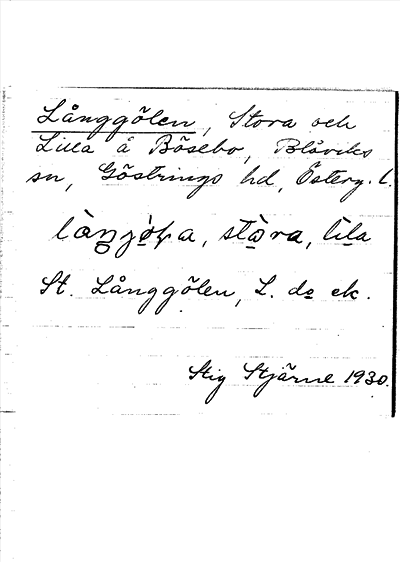 Långgölen, Stora och
Lilla å Bösebo, Blåviks
sn, Göstrings hd, Österg. l.
stòra, lila
St. Långgölen, L. do ek.
Stig Stjärne 1930.